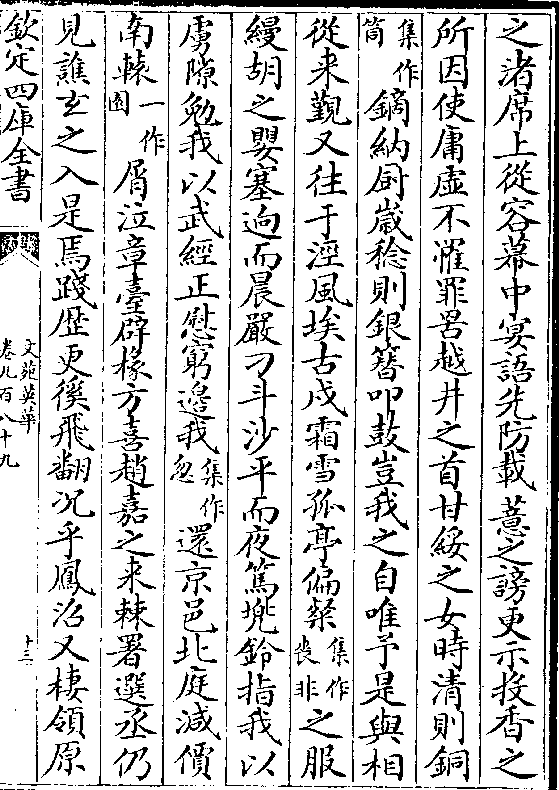 之渚席上從容幕中宴語先防載薏之謗更示投香之
所因使庸虚不罹罪罟越井之首甘綏之女時清則銅
集作筒鏑納厨歳稔則銀簪叩鼓豈我之自唯予是與相
從来覯又往于涇風埃古戍霜雪孤亭偏粲集作喪非之服
縵胡之嬰塞逈而晨嚴刁斗沙平而夜篤兠鈴指我以
虜隙勉我以武經正慰窮邊我集作忽還京邑北庭減價
南轅一作園屑泣章臺辟掾方喜趙嘉之来棘署選丞仍
見譙玄之入是焉踐歴更徯飛翻况乎鳳沼又棲領原
欽定四庫全書
文苑英華
卷九百八十九
十三